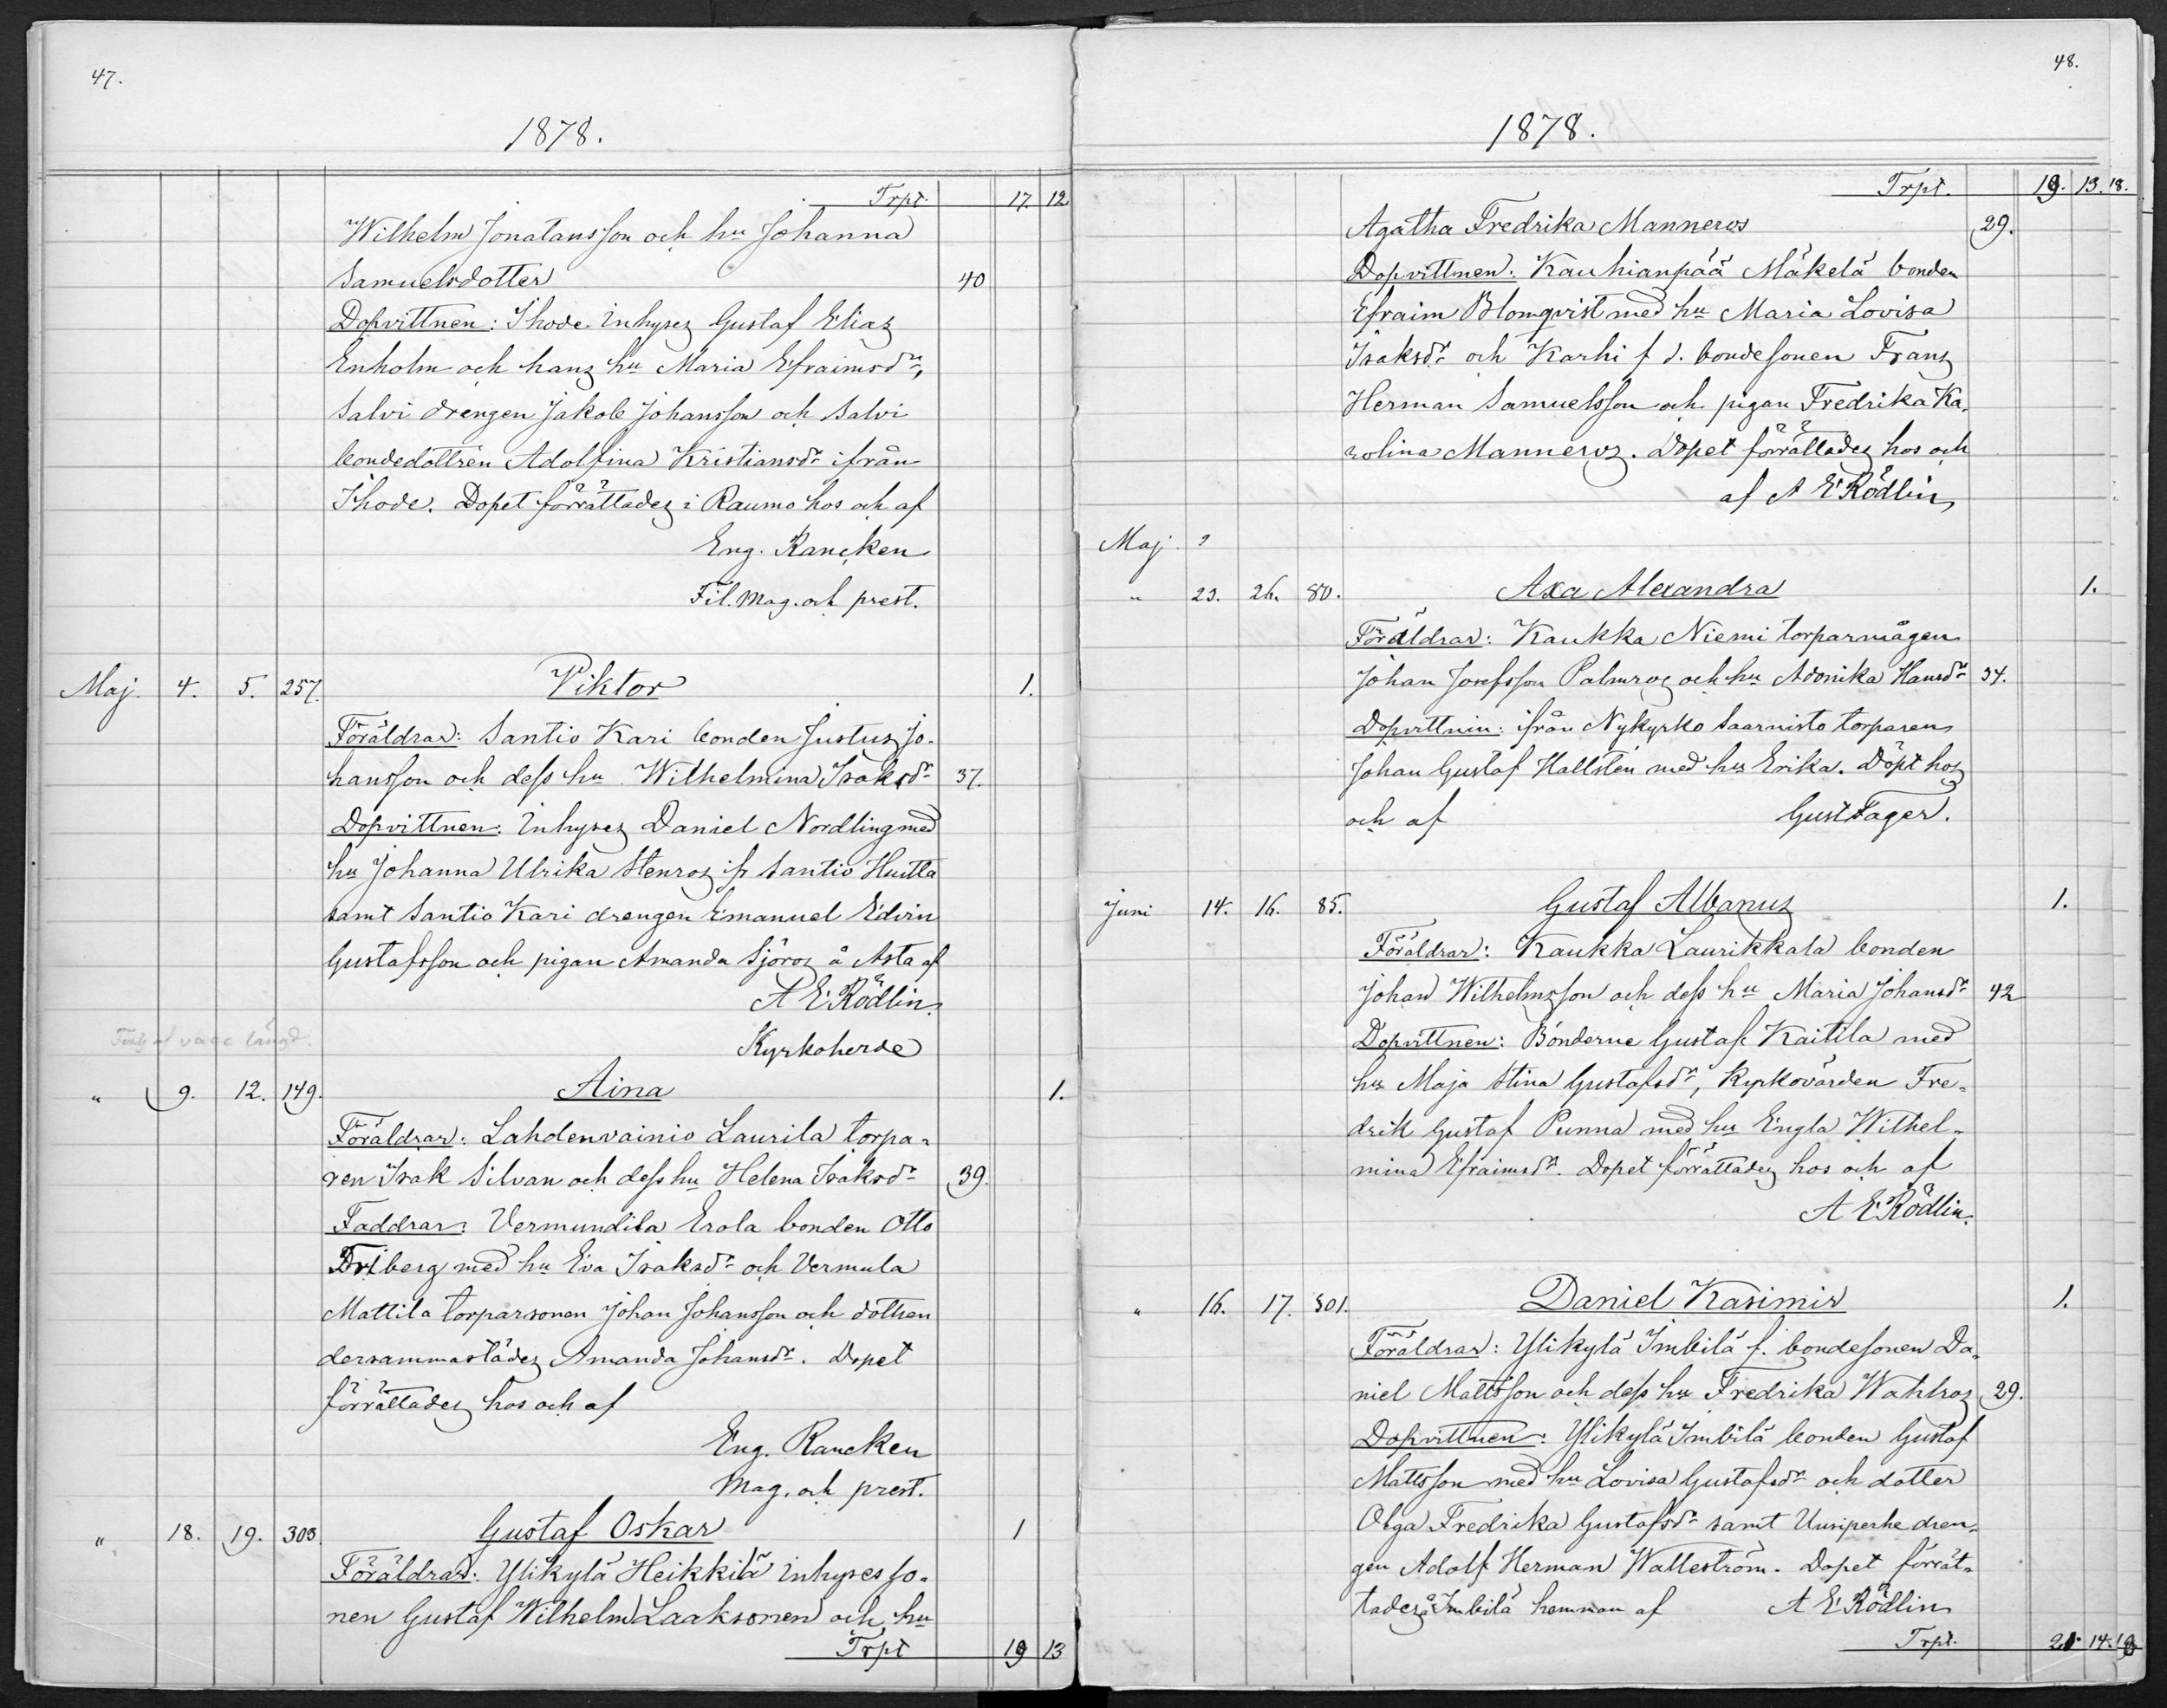 47.
1878.
Trpt. 17. 12
Wilhelm Jonatansson och hu Johanna
Samuelsdotter 40
Dopvittnen: Ihode inhyses Gustaf Elias
Enholm och hans hu Maria Efraimsdr,
Salvi drengen Jakob Johansson och Salvi
bondedottren Adolfina Kristiansdr ifrån
Ihode. Dopet förrättades i Raumo hos och af
Eng. Rancken
Fil. Mag. och prest.
Maj. 4. 5. 257. Viktor 1.
Föräldrar: Santio Kari bonden Justus Jo-
hansson och dess hu Wilhelmina Isaksdr 37.
Dopvittnen: Inhyses Daniel Nordling med
hu Johanna Ulrika Stenros ifr Santio Huitla
samt Santio Kari drengen Emanuel Edvin
Gustafsson och pigan Amanda Sjöros å Asta af
A E Rödlin.
Kyrkoherde
" 9. 12. 149. Aina 1.
Föräldrar: Lahdenvainio Laurila torpa-
ren Isak Silvan och dess hu Helena Isaksdr 39.
Faddrar: Vermundila Erola bonden Otto
Friberg med hu Eva Isaksdr och Vermula
Mattila torparsonen Johan Johansson och dottren
dersammastädes Amanda Johansdr. Dopet
förrättades hos och af
Eng. Rancken
Mag. och prest.
" 18. 19. 303. Gustaf Oskar 1
Föräldrar: Ylikylä Heikkilä inhyses so-
nen Gustaf Wilhelm Laaksonen och hu
Trpt 19 13
48.
1878.
Trpt. 19. 13. 18.
Agatha Fredrika Manneros 29.
Dopvittnen: Kauhianpää Mäkelä bonden
Efraim Blomqvist med hu Maria Lovisa
Isaksdr och Karhi f d. bondesonen Frans
Herman Samuelsson och pigan Fredrika Ka-
rolina Manneros. Dopet förrättades hos och
af A E Rödlin
Maj.
" 23. 26. 80. Axa Alexandra 1.
Föräldrar: Kaukka Niemi torparmågen
Johan Josefsson Palmros och hu Adonika Hansdr 34.
Dopvittnin: ifrån Nykyrko Saarnisto torparen
Johan Gustaf Hallstén med hu Erika. Döpt hos
och af Gust Fager.
Juni 14. 16. 85. Gustaf Albanus 1.
Föräldrar: Kaukka Laurikkala bonden
Johan Wilhelmsson och dess hu Maria Johansdr 42
Dopvittnen: Bönderne Gustaf Kaitila med
hu Maja Stina Gustafsdr, Kyrkovärden Fre-
drik Gustaf Punna med hu Engla Wilhel-
mina Efraimsdr. Dopet förrättades hos och af
A E Rödlin.
" 16. 17. 301. Daniel Kasimir 1.
Föräldrar: Ylikylä Imbilä f. bondesonen Da-
niel Mattsson och dess hu Fredrika Wahlros 29.
Dopvittnen: Ylikylä Imbilä bonden Gustaf
Mattsson med hu Lovisa Gustafsdr och dotter
Olga Fredrika Gustafsdr samt Uusiperhe dren-
gen Adolf Herman Walleström. Dopet förrät-
tades å Imbilä hemman af A E Rödlin
Trpt. 21. 14. 18